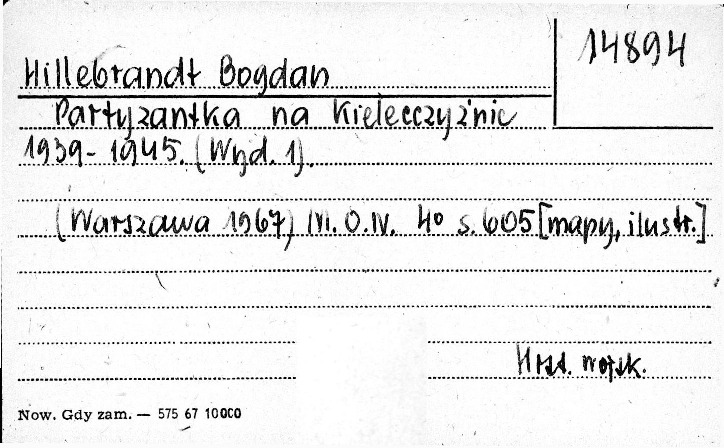 14894
Hillebrandt Bogdan
Partyzantka na Kielecczyźnie
1939-1945. (Wyd. 1).
(Warszawa 1967) M.O.N. 4° s. 605 [mapy, ilustr.]
Hist. wojsk.
Now. Gdy zam. — 575 67 10000